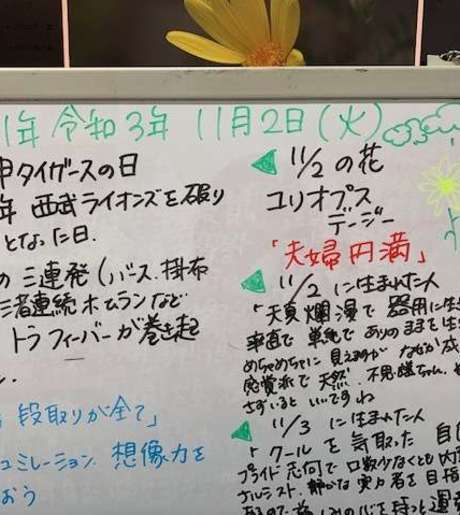 1年 令和3年 11月2日(火)
申タイガースの日
年 西武ライオンズを破り
となった日.
の 三連発(バース. 掛布
三者連続ホムランなど
トラフィーバーが巻き起
段取りが全て」
ュミレーション. 想像力を
おう
11/2 の花
ユリオプス
デージー
「夫婦円満」
11/2 に生まれた人
「天真爛漫で 器用に生
率直で 単純で ありのままを生
めちゃめちゃに 見えますが なぜか成
感覚派で天然. 不思議ちゃん.
さずいると いいですね
11/3 に生まれた人
「クールを気取った 自
プライド志向で 口数少なくとも内
ナルシスト. 静かな 実力者を目指